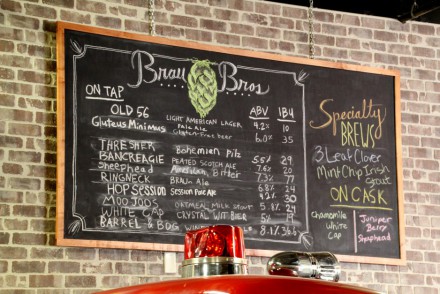 Brau Bros
ON TAP ABV IBU
OLD 56 LIGHT AMERICAN LAGER 4.2% 10
Gluteus Minimus Pale Ale 6.0% 35
Gluten-Free beer
THRESHER Bohemian Pilz
BANCREAGIE PEATED SCOTCH ALE 5.5% 29
Sheephead American Bitter 7.6% 20
RINGNECK BRAUn Ale 7.3% 77
HOP SESSION Session Pale Ale 6.8% 24
MOO JOOS OATMEAL Milk Stout 4.2% 30
WHITE CAP CRYSTAL WIT BIER 5.8% 24
BARREL & BOG 5% 19
8.1%
Specialty
BREWS
3 Leaf Clover
Mint Chip Irish
Stout
ON CASK
Chamomile
White
Cap
Juniper
Berry
Sheephead